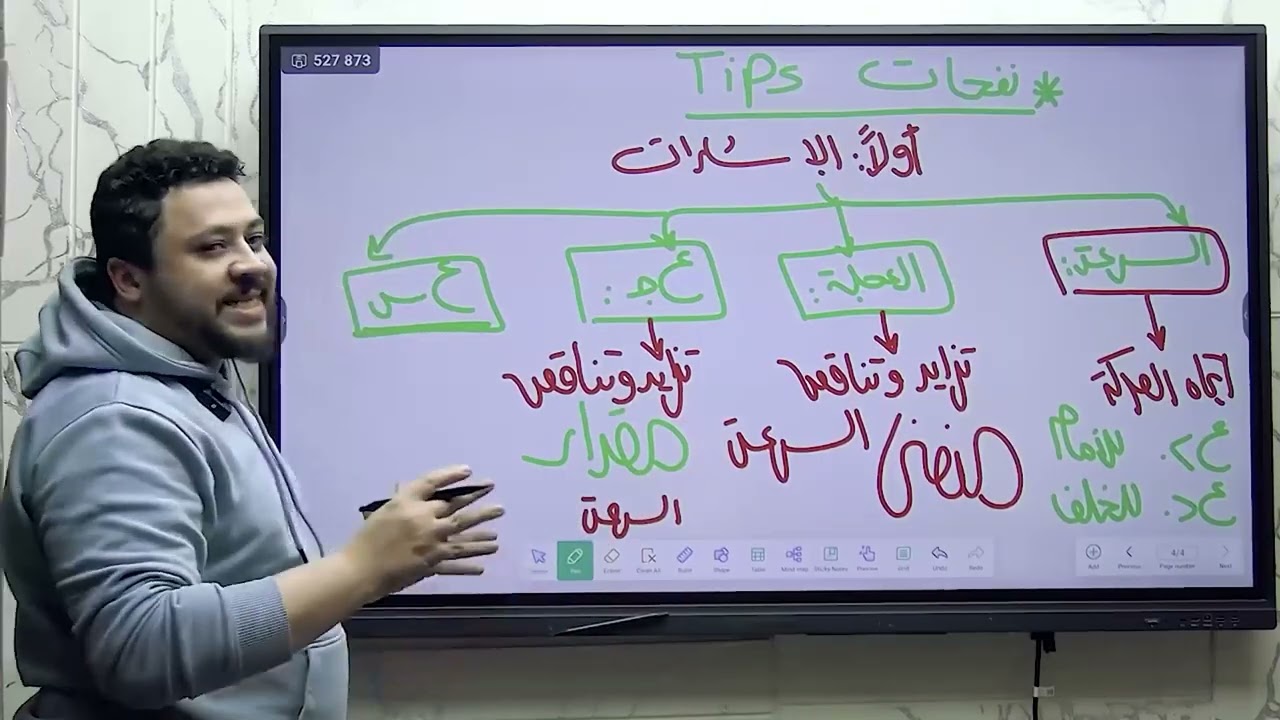 527 873
* نفحات Tips
أولاً: الإشارات
السرعة:
العجلة:
ع جـ :
ع س
اتجاه الحركة
تزايد وتناقص
تزايد وتناقص
ع > . للأمام
السرعة
مقدار
ع < . للخلف
السرعة
Select Pen Eraser Clear All Ruler Shape Table Mind map Sticky Notes Preview Grid Undo Redo
Add Previous 4/4 Page number Next